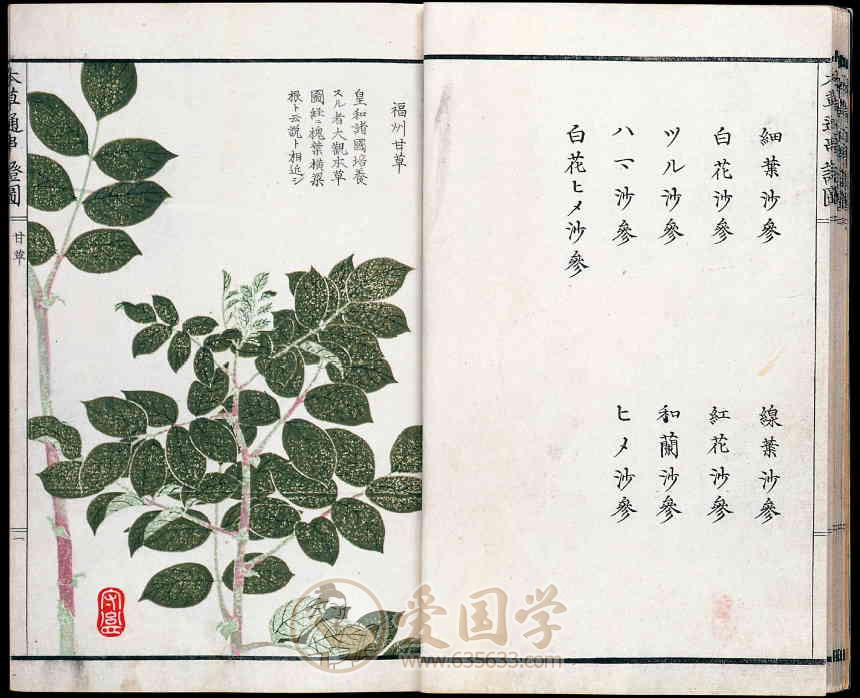 細葉沙參
線葉沙參
白花沙參
紅花沙參
ツル沙參
和蘭沙參
ハマ沙參
ヒメ沙參
白花ヒメ沙參
福州甘草
皇和諸國培養
スル者大觀本草
圖経ニ槐葉橫梁
根ト云説ト相近シ
本草通串證圖
甘草
一
爱国学
www.635633.com